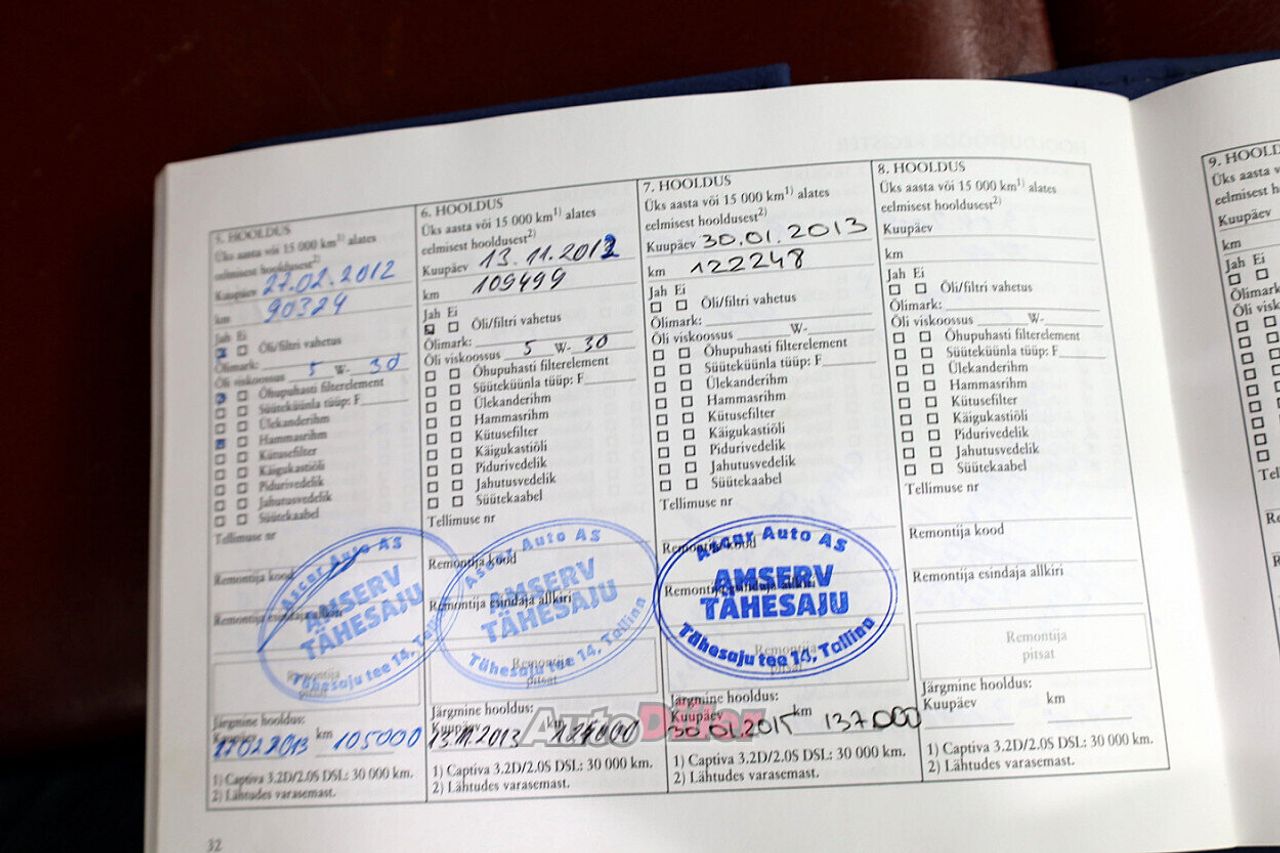 5. HOOLDUS
Üks aasta või 15 000 km1) alates
eelmisest hooldusest2)
Kuupäev 27.02.2012
km 90324
Jah Ei
Õli/filtri vahetus
Õlimark:
Õli viskoossus 5 W- 30
Õhupuhasti filterelement
Süüteküünla tüüp: F
Ülekanderihm
Hammasrihm
Kütusefilter
Käigukastiõli
Pidurivedelik
Jahutusvedelik
Süütekaabel
Tellimuse nr
Remontija kood
Remontija esindaja allkiri
Ascar Auto AS
AMSERV
TÄHESAJU
Tähesaju tee 14,
Remontija
pitsat
Järgmine hooldus:
Kuupäev km
27.02.2013 105000
1) Captiva 3.2D/2.0S DSL: 30 000 km.
2) Lähtudes varasemast.
6. HOOLDUS
Üks aasta või 15 000 km1) alates
eelmisest hooldusest2)
Kuupäev 13.11.2012
km 109499
Jah Ei
Õli/filtri vahetus
Õlimark:
Õli viskoossus 5 W- 30
Õhupuhasti filterelement
Süüteküünla tüüp: F
Ülekanderihm
Hammasrihm
Kütusefilter
Käigukastiõli
Pidurivedelik
Jahutusvedelik
Süütekaabel
Tellimuse nr
Remontija kood
Remontija esindaja allkiri
Ascar Auto AS
AMSERV
TÄHESAJU
Tähesaju tee 14, Tallinn
Remontija
pitsat
Järgmine hooldus:
Kuupäev km
13.11.2013
1) Captiva 3.2D/2.0S DSL: 30 000 km.
2) Lähtudes varasemast.
7. HOOLDUS
Üks aasta või 15 000 km1) alates
eelmisest hooldusest2)
Kuupäev 30.01.2013
km 122248
Jah Ei
Õli/filtri vahetus
Õlimark:
Õli viskoossus W-
Õhupuhasti filterelement
Süüteküünla tüüp: F
Ülekanderihm
Hammasrihm
Kütusefilter
Käigukastiõli
Pidurivedelik
Jahutusvedelik
Süütekaabel
Tellimuse nr
Remontija kood
Remontija esindaja allkiri
Ascar Auto AS
AMSERV
TÄHESAJU
Tähesaju tee 14, Tallinn
Remontija
pitsat
Järgmine hooldus:
Kuupäev km
30.01.2015 137000
1) Captiva 3.2D/2.0S DSL: 30 000 km.
2) Lähtudes varasemast.
8. HOOLDUS
Üks aasta või 15 000 km1) alates
eelmisest hooldusest2)
Kuupäev
km
Jah Ei
Õli/filtri vahetus
Õlimark:
Õli viskoossus W-
Õhupuhasti filterelement
Süüteküünla tüüp: F
Ülekanderihm
Hammasrihm
Kütusefilter
Käigukastiõli
Pidurivedelik
Jahutusvedelik
Süütekaabel
Tellimuse nr
Remontija kood
Remontija esindaja allkiri
Remontija
pitsat
Järgmine hooldus:
Kuupäev km
1) Captiva 3.2D/2.0S DSL: 30 000 km.
2) Lähtudes varasemast.
9.
Üks aasta
eelmisest
Kuupäev
km
Jah Ei
Õlimark
Õli
AutoDiler
32